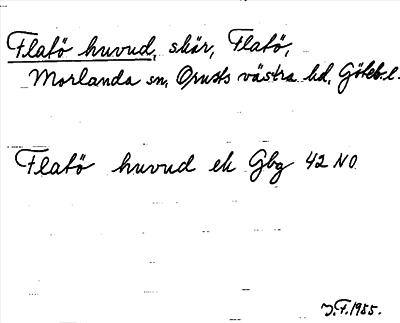 Flatö huvud, skär, Flatö,
Morlanda sn, Orusts västra hd, Göteb.l.
Flatö huvud ek Gbg 42 NO
J.F. 1955.